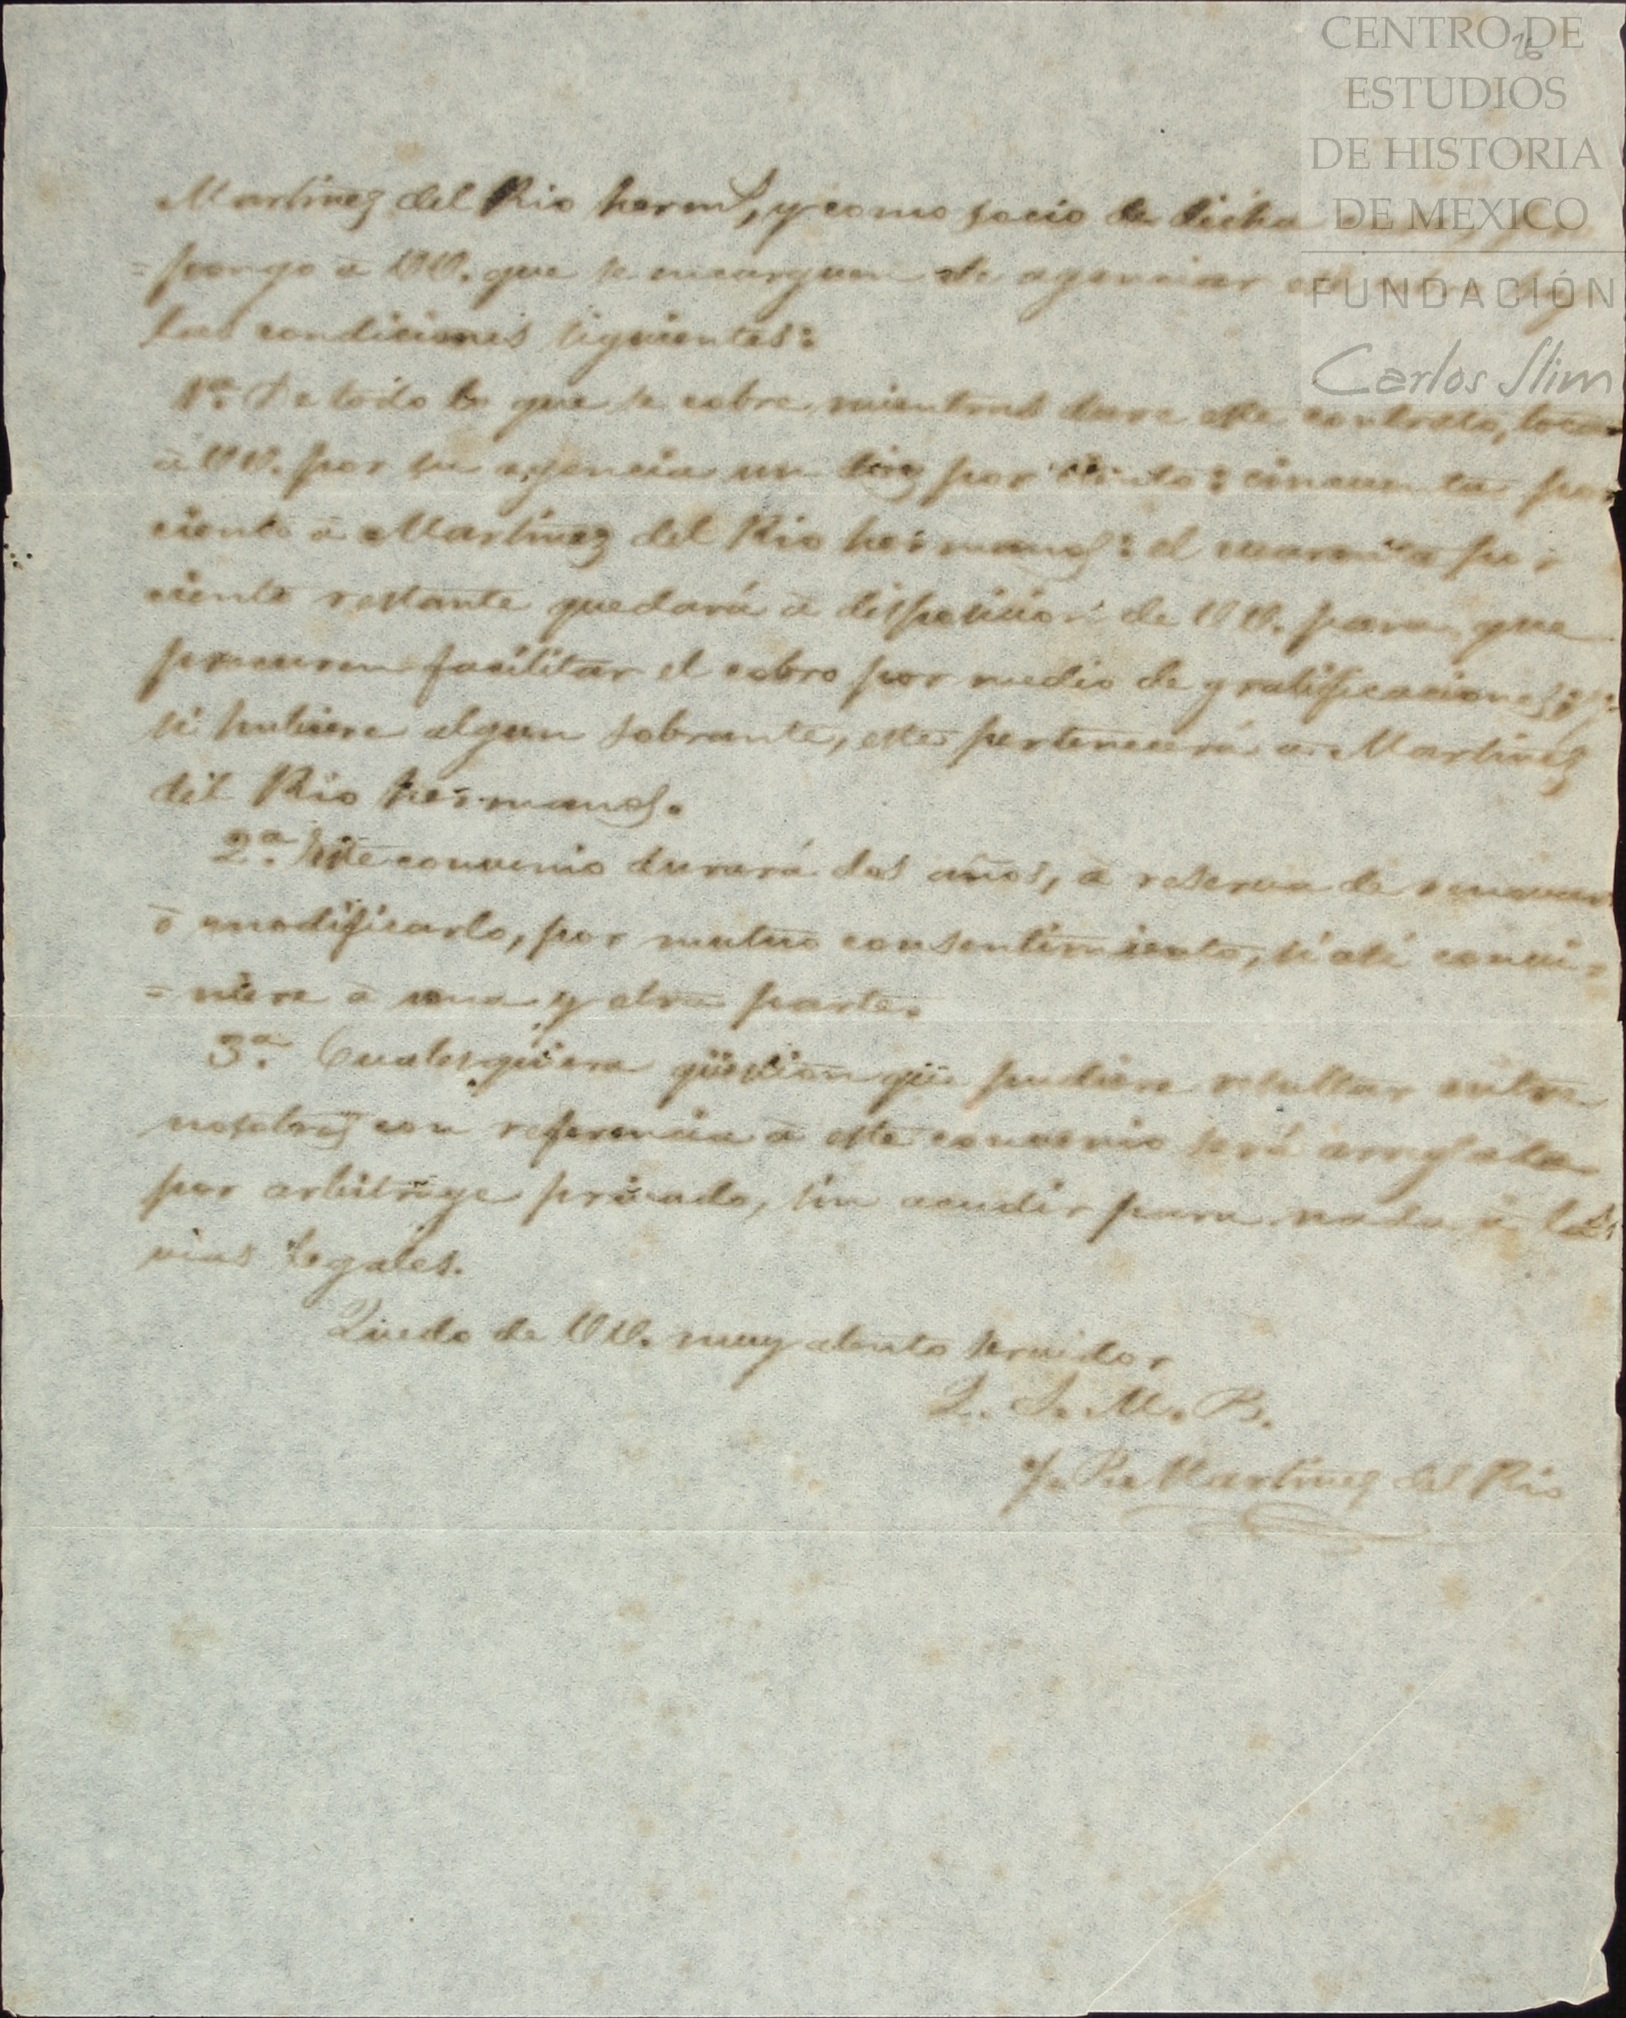 CENTRO DE
ESTUDIOS
DE HISTORIA
DE MEXICO
FUNDACIÓN
Carlos Slim
Martinez del Rio herms, y como socio de dicha
=pongo à VV. que se encarguen de agenciar
las condiciones siguientes:
1ª. De todo lo que se cobre mientras dure este contrato, toca
à VV. por su agencia un diez por ciento: cincuenta por
ciento à Martinez del Rio hermanos: el cuarenta por
ciento restante quedará à disposicion de VV. para que
procuren facilitar el cobro por medio de gratificaciones; y
si hubiere algun sobrante, este pertenecerá a Martinez
del Rio hermanos.
2ª. Este convenio durará dos años, à reserva de renovar
ò modificarlo, por mutuo consentimiento, si asi convi=
=niere à una y otra parte.
3ª. Cualesquiera qüestion que pudiere resultar entre
nosotros con referencia à este convenio será arreglada
por arbitrage privado, sin acudir para nada à las
vias legales.
Quedo de VV. muy atento servidor
Q. S. M. B.
J. P. Martinez del Rio